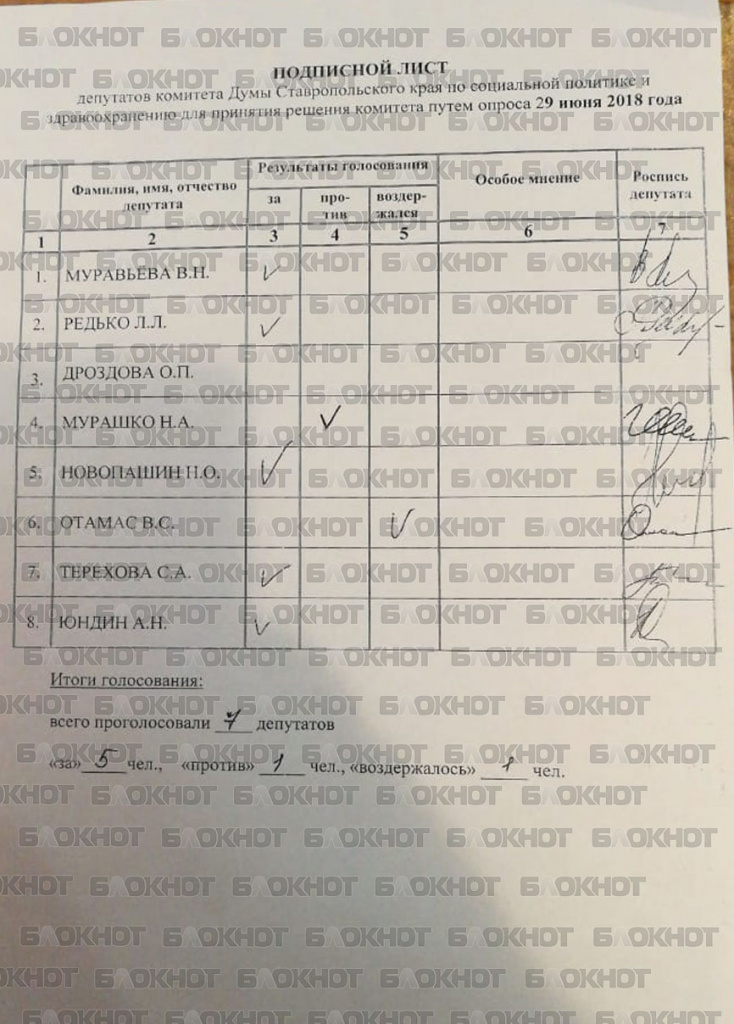 ПОДПИСНОЙ ЛИСТ
депутатов комитета Думы Ставропольского края по социальной политике и
здравоохранению для принятия решения комитета путем опроса 29 июня 2018 года
Фамилия, имя, отчество депутата Результаты голосования Особое мнение Роспись депутата
за про-тив воздер-жался
1 2 3 4 5 6 7
1. МУРАВЬЁВА В.Н. ✓
2. РЕДЬКО Л.Л. ✓
3. ДРОЗДОВА О.П.
4. МУРАШКО Н.А. ✓
5. НОВОПАШИН Н.О. ✓
6. ОТАМАС В.С. ✓
7. ТЕРЕХОВА С.А. ✓
8. ЮНДИН А.Н. ✓
Итоги голосования:
всего проголосовали 7 депутатов
«за» 5 чел., «против» 1 чел., «воздержалось» 1 чел.
БЛОКНОТ